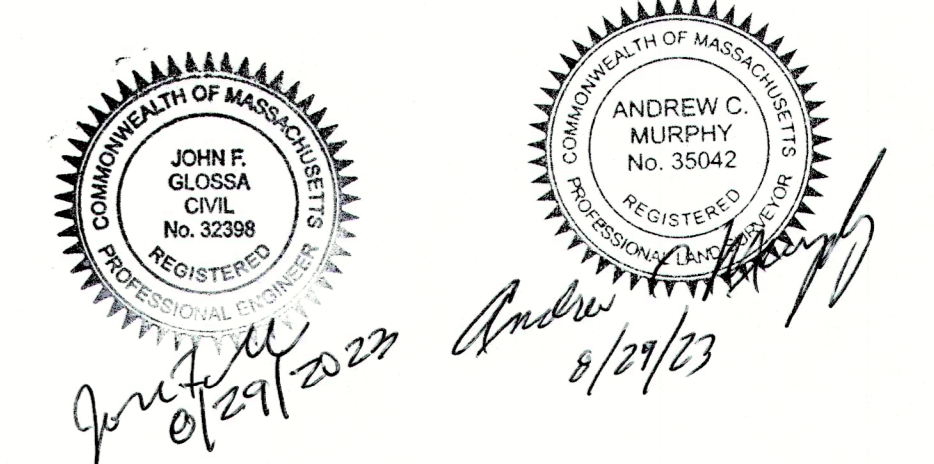 COMMONWEALTH OF MASSACHUSETTS
JOHN F.
GLOSSA
CIVIL
No. 32398
REGISTERED
PROFESSIONAL ENGINEER
8/29/2023
COMMONWEALTH OF MASSACHUSETTS
ANDREW C.
MURPHY
No. 35042
REGISTERED
PROFESSIONAL LAND SURVEYOR
Andrew C Murphy
8/29/23